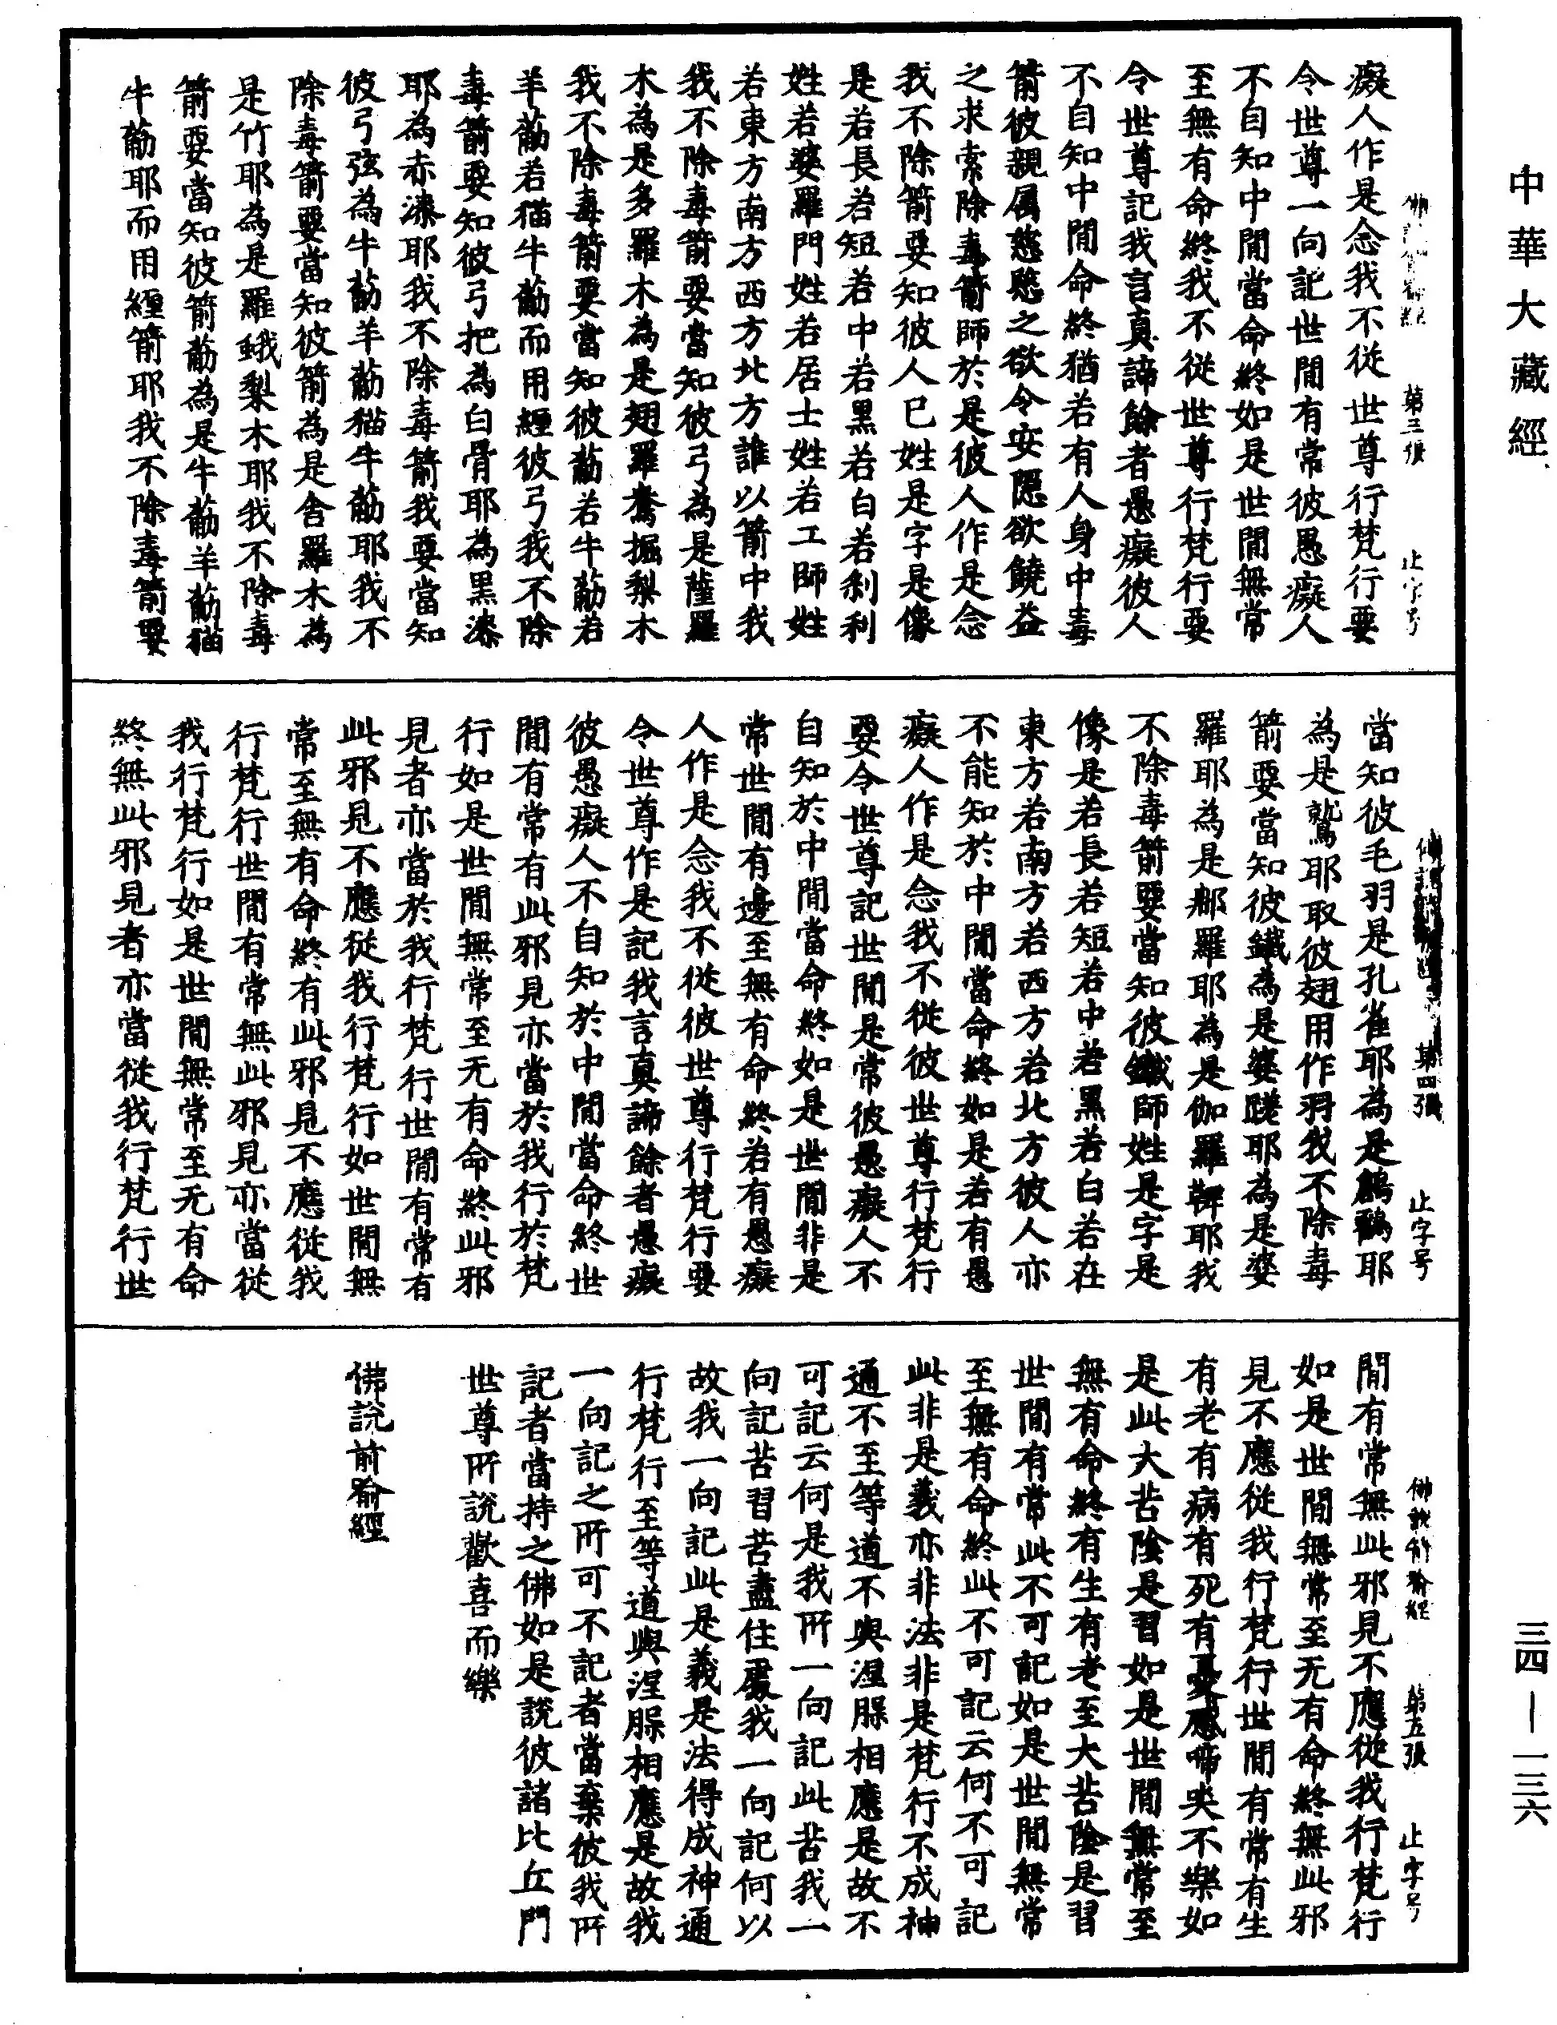 中華大藏經
第三張
止字号
癡人作是念我不從世尊行梵行要
令世尊一向記世間有常彼愚癡人
不自知中間當命終如是世間無常
至無有命終我不從世尊行梵行要
令世尊記我言真諦餘者愚癡彼人
不自知中間命終猶若有人身中毒
箭彼親属慈愍之欲令安隱欲饒益
之求索除毒箭師於是彼人作是念
我不除箭要知彼人已姓是字是像
是若長若短若中若黑若白若剎利
姓若婆羅門姓若居士姓若工師姓
若東方南方西方北方誰以箭中我
我不除毒箭要當知彼弓為是薩羅
木為是多羅木為是翅羅鴦掘梨木
我不除毒箭要當知彼葋若牛葋若
羊葋若猫牛葋而用纏彼弓我不除
毒箭要知彼弓把為白骨耶為黑漆
耶為赤漆耶我不除毒箭我要當知
彼弓弦為牛葋羊葋猫牛葋耶我不
除毒箭要當知彼箭為是舍羅木為
是竹耶為是羅蛾梨木耶我不除毒
箭要當知彼箭葋為是牛葋羊葋猫
牛葋耶而用纏箭耶我不除毒箭要
第四張
止字号
當知彼毛羽是孔雀耶為是鶬鶴耶
為是鷲耶取彼翅用作羽我不除毒
箭要當知彼鐵為是婆蹉耶為是婆
羅耶為是那羅耶為是伽羅鞞耶我
不除毒箭要當知彼鐵師姓是字是
像是若長若短若中若黑若白若在
東方若南方若西方若北方彼人亦
不能知於中間當命終如是若有愚
癡人作是念我不從彼世尊行梵行
要令世尊記世間是常彼愚癡人不
自知於中間當命終如是世間非是
常世間有邊至無有命終若有愚癡
人作是念我不從彼世尊行梵行要
令世尊作是記我言真諦餘者愚癡
彼愚癡人不自知於中間當命終世
間有常有此邪見亦當於我行於梵
行如是世間無常至无有命終此邪
見者亦當於我行梵行世間有常有
此邪見不應從我行梵行如世間無
常至無有命終有此邪見不應從我
行梵行世間有常無此邪見亦當從
我行梵行如是世間無常至无有命
終無此邪見者亦當從我行梵行世
佛說箭喻經
第五張
止字号
間有常無此邪見不應從我行梵行
如是世間無常至无有命終無此邪
見不應從我行梵行世間有常有生
有老有病有死有憂慼啼哭不樂如
是此大苦陰是習如是世間無常至
無有命終有生有老至大苦陰是習
世間有常此不可記如是世間無常
至無有命終此不可記云何不可記
此非是義亦非法非是梵行不成神
通不至等道不與涅槃相應是故不
可記云何是我所一向記此苦我一
向記苦習苦盡住處我一向記何以
故我一向記此是義是法得成神通
行梵行至等道與涅槃相應是故我
一向記之所可不記者當棄彼我所
記者當持之佛如是說彼諸比丘聞
世尊所說歡喜而樂
佛說箭喻經
三四—一三六